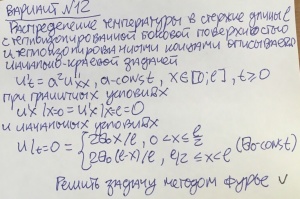 ВАРИАНТ №12
Распределение температуры в стержне длины l
с теплоизолированной боковой поверхностью
и теплоизолированными концами описывается
начально-краевой задачей
u't = a²u''xx, a-const, x∈[0;l], t≥0
при граничных условиях
u'x|x=0 = u'x|x=l = 0
и начальных условиях
u|t=0 = { 2θ₀x/l, 0<x≤l/2
2θ₀(l-x)/l, l/2≤x<l (θ₀-const)
Решить задачу методом Фурье